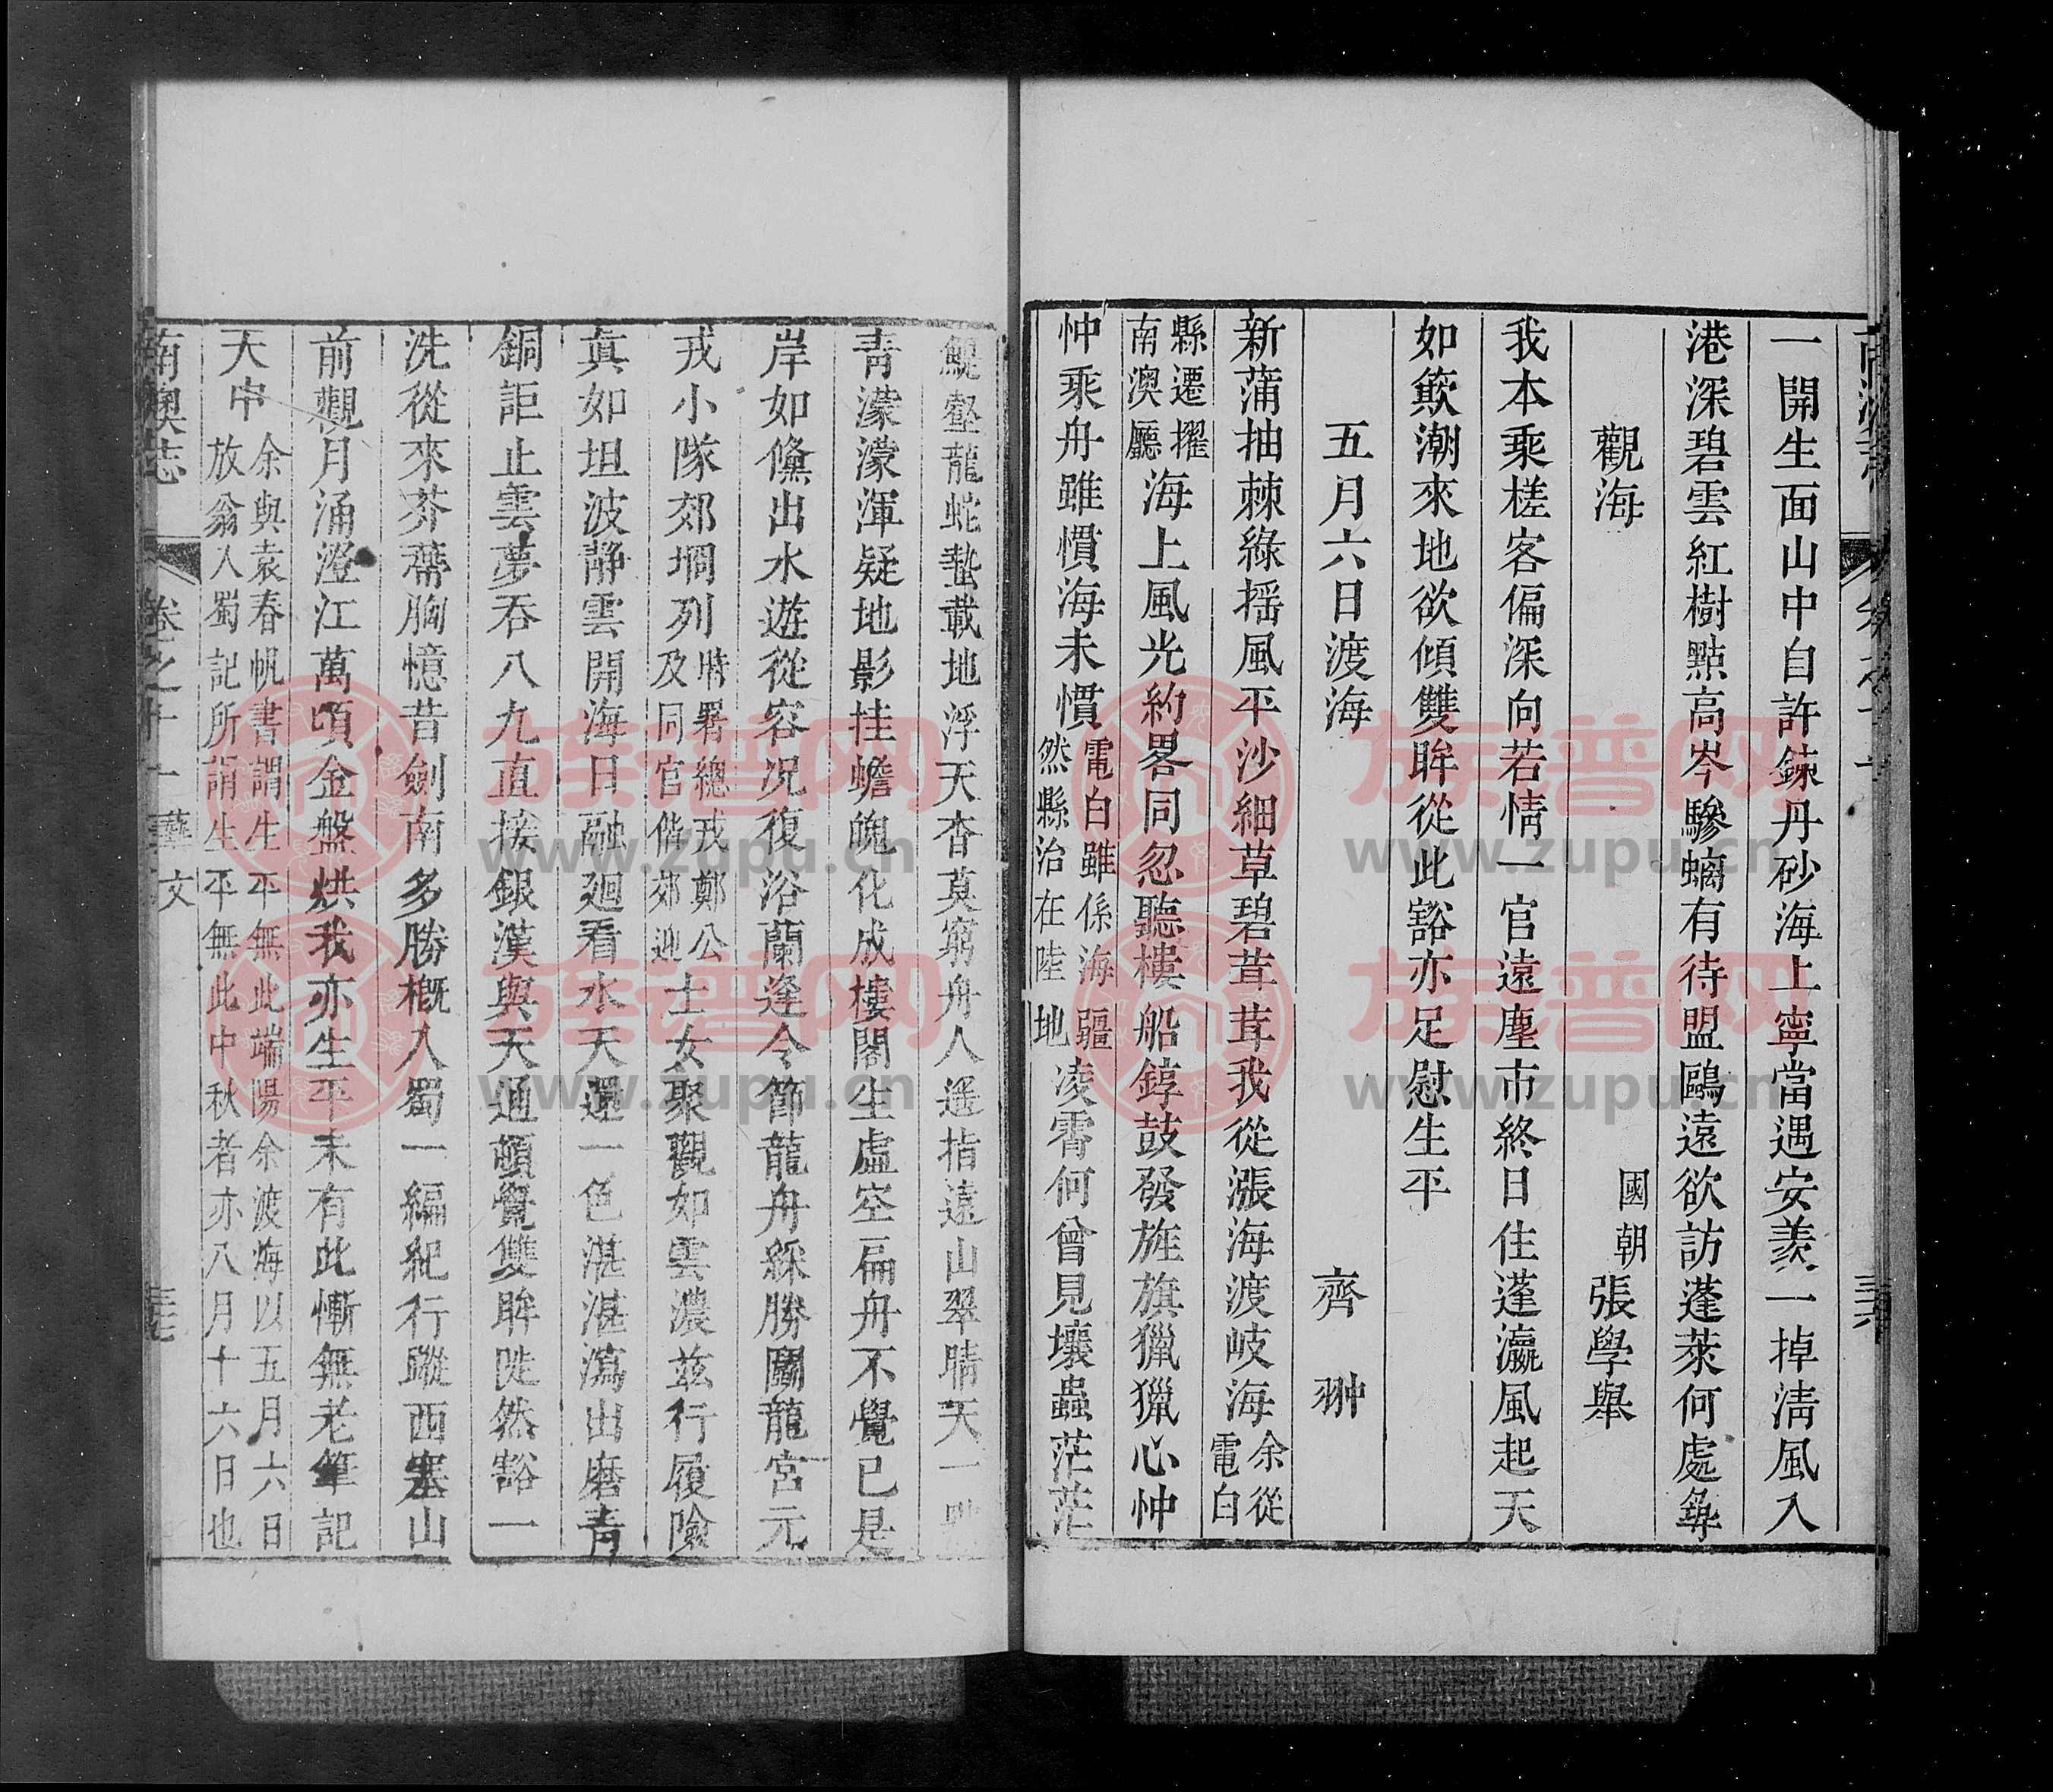 一開生面山中自許鍊丹砂海上寧當遇安羨一掉清風入
港深碧雲紅樹點高岑驂螭有待盟鷗遠欲訪蓬萊何處尋
觀海
國朝張學舉
我本乘槎客偏深向若情一官遠塵市終日住蓬瀛風起天
如簸潮來地欲傾雙眸從此豁亦足慰生平
五月六日渡海
齊翀
新蒲抽棘綠搖風平沙細草碧茸茸我從漲海渡岐海余從電白
縣遷擢南澳廳海上風光約畧同忽聽樓船錞鼓發旌旗獵獵心忡
忡乘舟雖慣海未慣電白雖係海疆然縣治在陸地凌霄何曾見壤蟲茫茫
鯤壑龍蛇蟄載地浮天杳莫窮舟人遥指遠山翠晴天一點
青濛濛渾疑地影挂蟾魄化成樓閣生虛空扁舟不覺已是
岸如儵出水遊從容况復浴蘭逢令節龍舟綵勝鬬龍宮元
戎小隊郊坰列時署總戎鄭公及同官偕郊迎士女聚觀如雲濃兹行履險
真如坦波静雲開海日融廻看水天還一色湛湛瀉出磨青
銅詎止雲夢吞八九直接銀漢與天通頓覺雙眸陡然豁一
洗從來芥蔕胸憶昔劍南多勝概入蜀一編紀行蹤西塞山
前觀月涌澄江萬頃金盤烘我亦生平未有此慚無老筆記
天中余與袁春帆書謂生平無此端陽余渡海以五月六日放翁入蜀記所謂生平無此中秋者亦八月十六日也
南澳志 卷之十一 藝文 三七
族普网
www.zupu.cn
族普网
www.zupu.cn
族普网
www.zupu.cn
族普网
www.zupu.cn